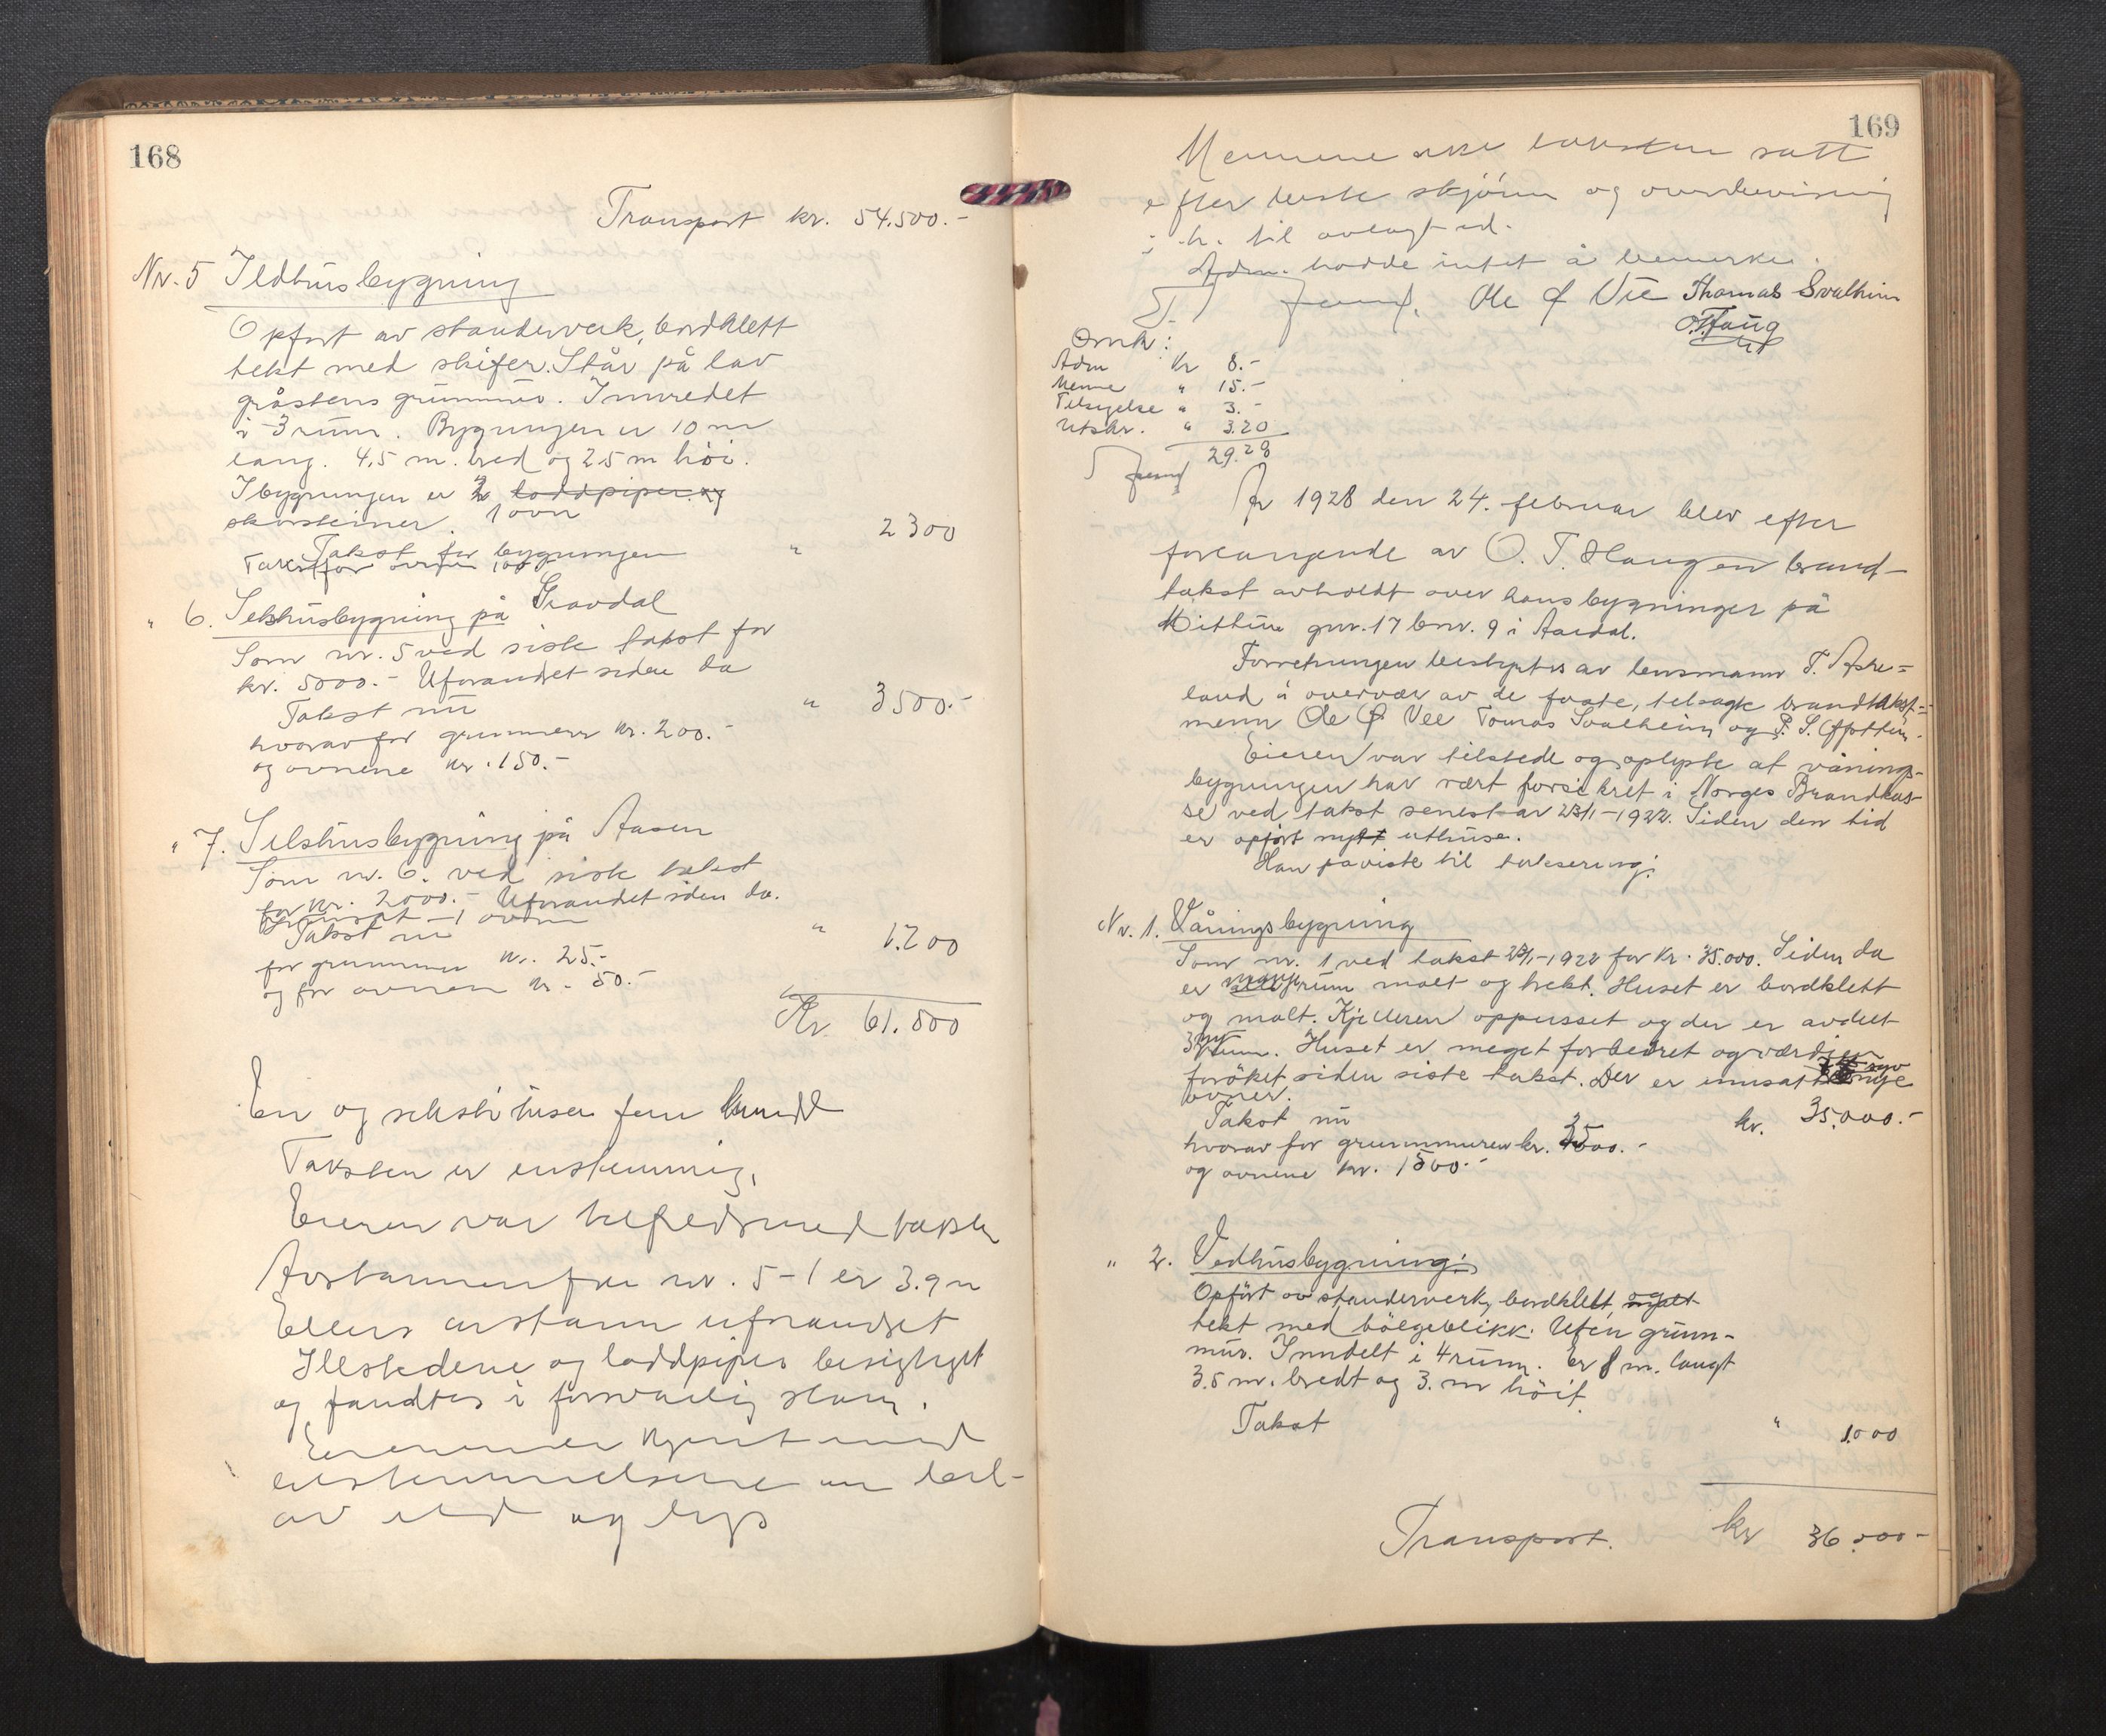 168
Transport kr. 54.500.-
Nr. 5 Ildhusbygning
Opført av standerverk, bordklett
tekt med skifer. Står på lav
gråstens grunnmur. Innredet
i 3 rum. Bygningen er 10 m
lang. 4,5 m. bred og 2,5 m høi.
I bygningen er 2 loddpiper og
skorsteiner. 1 ovn
Takst for bygningen " 2300
Takst for ovnen 100
" 6. Selshusbygning på Gravdal
Som nr. 5 ved siste takst for
kr. 5000.- Uforandret siden da
Takst nu " 3500.-
hvorav for grunnmur kr. 200.-
og ovnene kr. 150.-
" 7. Selshusbygning på Aasen
Som nr. 6. ved siste takst
for kr. 2000.- Uforandret siden da.
1 ovn
Takst nu " 1.200
for grunnmur kr. 25.-
og for ovnen kr. 50.-
Kr. 61.500
En og seksti tusen fem hundre
Taksten er enstemmig.
Eieren var tilfreds med taksten
Avstannen fra nr. 5-1 er 3.9 m
Ellers avstann uforandret
Ildstedene og loddpiper besigtiget
og fandtes i forsvarlig stann.
Eieren er kjent med
bestemmelsene om
av ild og lys
169
Mennene taksten satt
efter beste skjønn og overbevisning
i h. til avlagt ed.
Adm. hadde intet å bemerke.
Ole Ø Vee Thomas Svalheim
Omk:
Adm Kr 8.-
Menne " 15.-
Tilsigelse " 3.-
Utskr. " 3.20
29.28
År 1928 den 24. februar blev efter
forlangende av O. T. Haugen brand-
takst avholdt over hans bygninger på
Mittun gnr. 17 bnr. 9 i Aardal.
Forretningen bestyrtes av lensmann T. Aske-
land i overvær av de faste, tilsagte brandtakst-
menn Ole Ø Vee Tomas Svalheim og P. S. Ofottun.
Eieren var tilstede og oplyste at vånings-
bygningen har vært forsikret i Norges Brandkas-
se ved takst senest av 23/1-1922. Siden den tid
er opført nytt uthuse.
Han påviste til taksering:
Nr. 1. Våningsbygning
Som nr. 1 ved takst 23/1-1922 for kr. 35.000. Siden da
er rum malt og trekt. Huset er bordklett
og malt. Kjelleren oppusset og der er avdelt
3 nye rum. Huset er meget forbedret og værdien
forøket siden siste takst. Der er innsatt syv nye
ovner.
Takst nu kr. 35.000.-
hvorav for grunnmuren kr. 2500.-
og ovnene kr. 1500.-
" 2. Vedhusbygning:
Opført av standerverk, bordklett, og malt
tekt med bølgeblikk. Uten grunn-
mur. Inndelt i 4 rum. Er 8 m. langt
3.5 m. bredt og 3. m høit.
Takst " 1.000
Transport. kr 36.000-